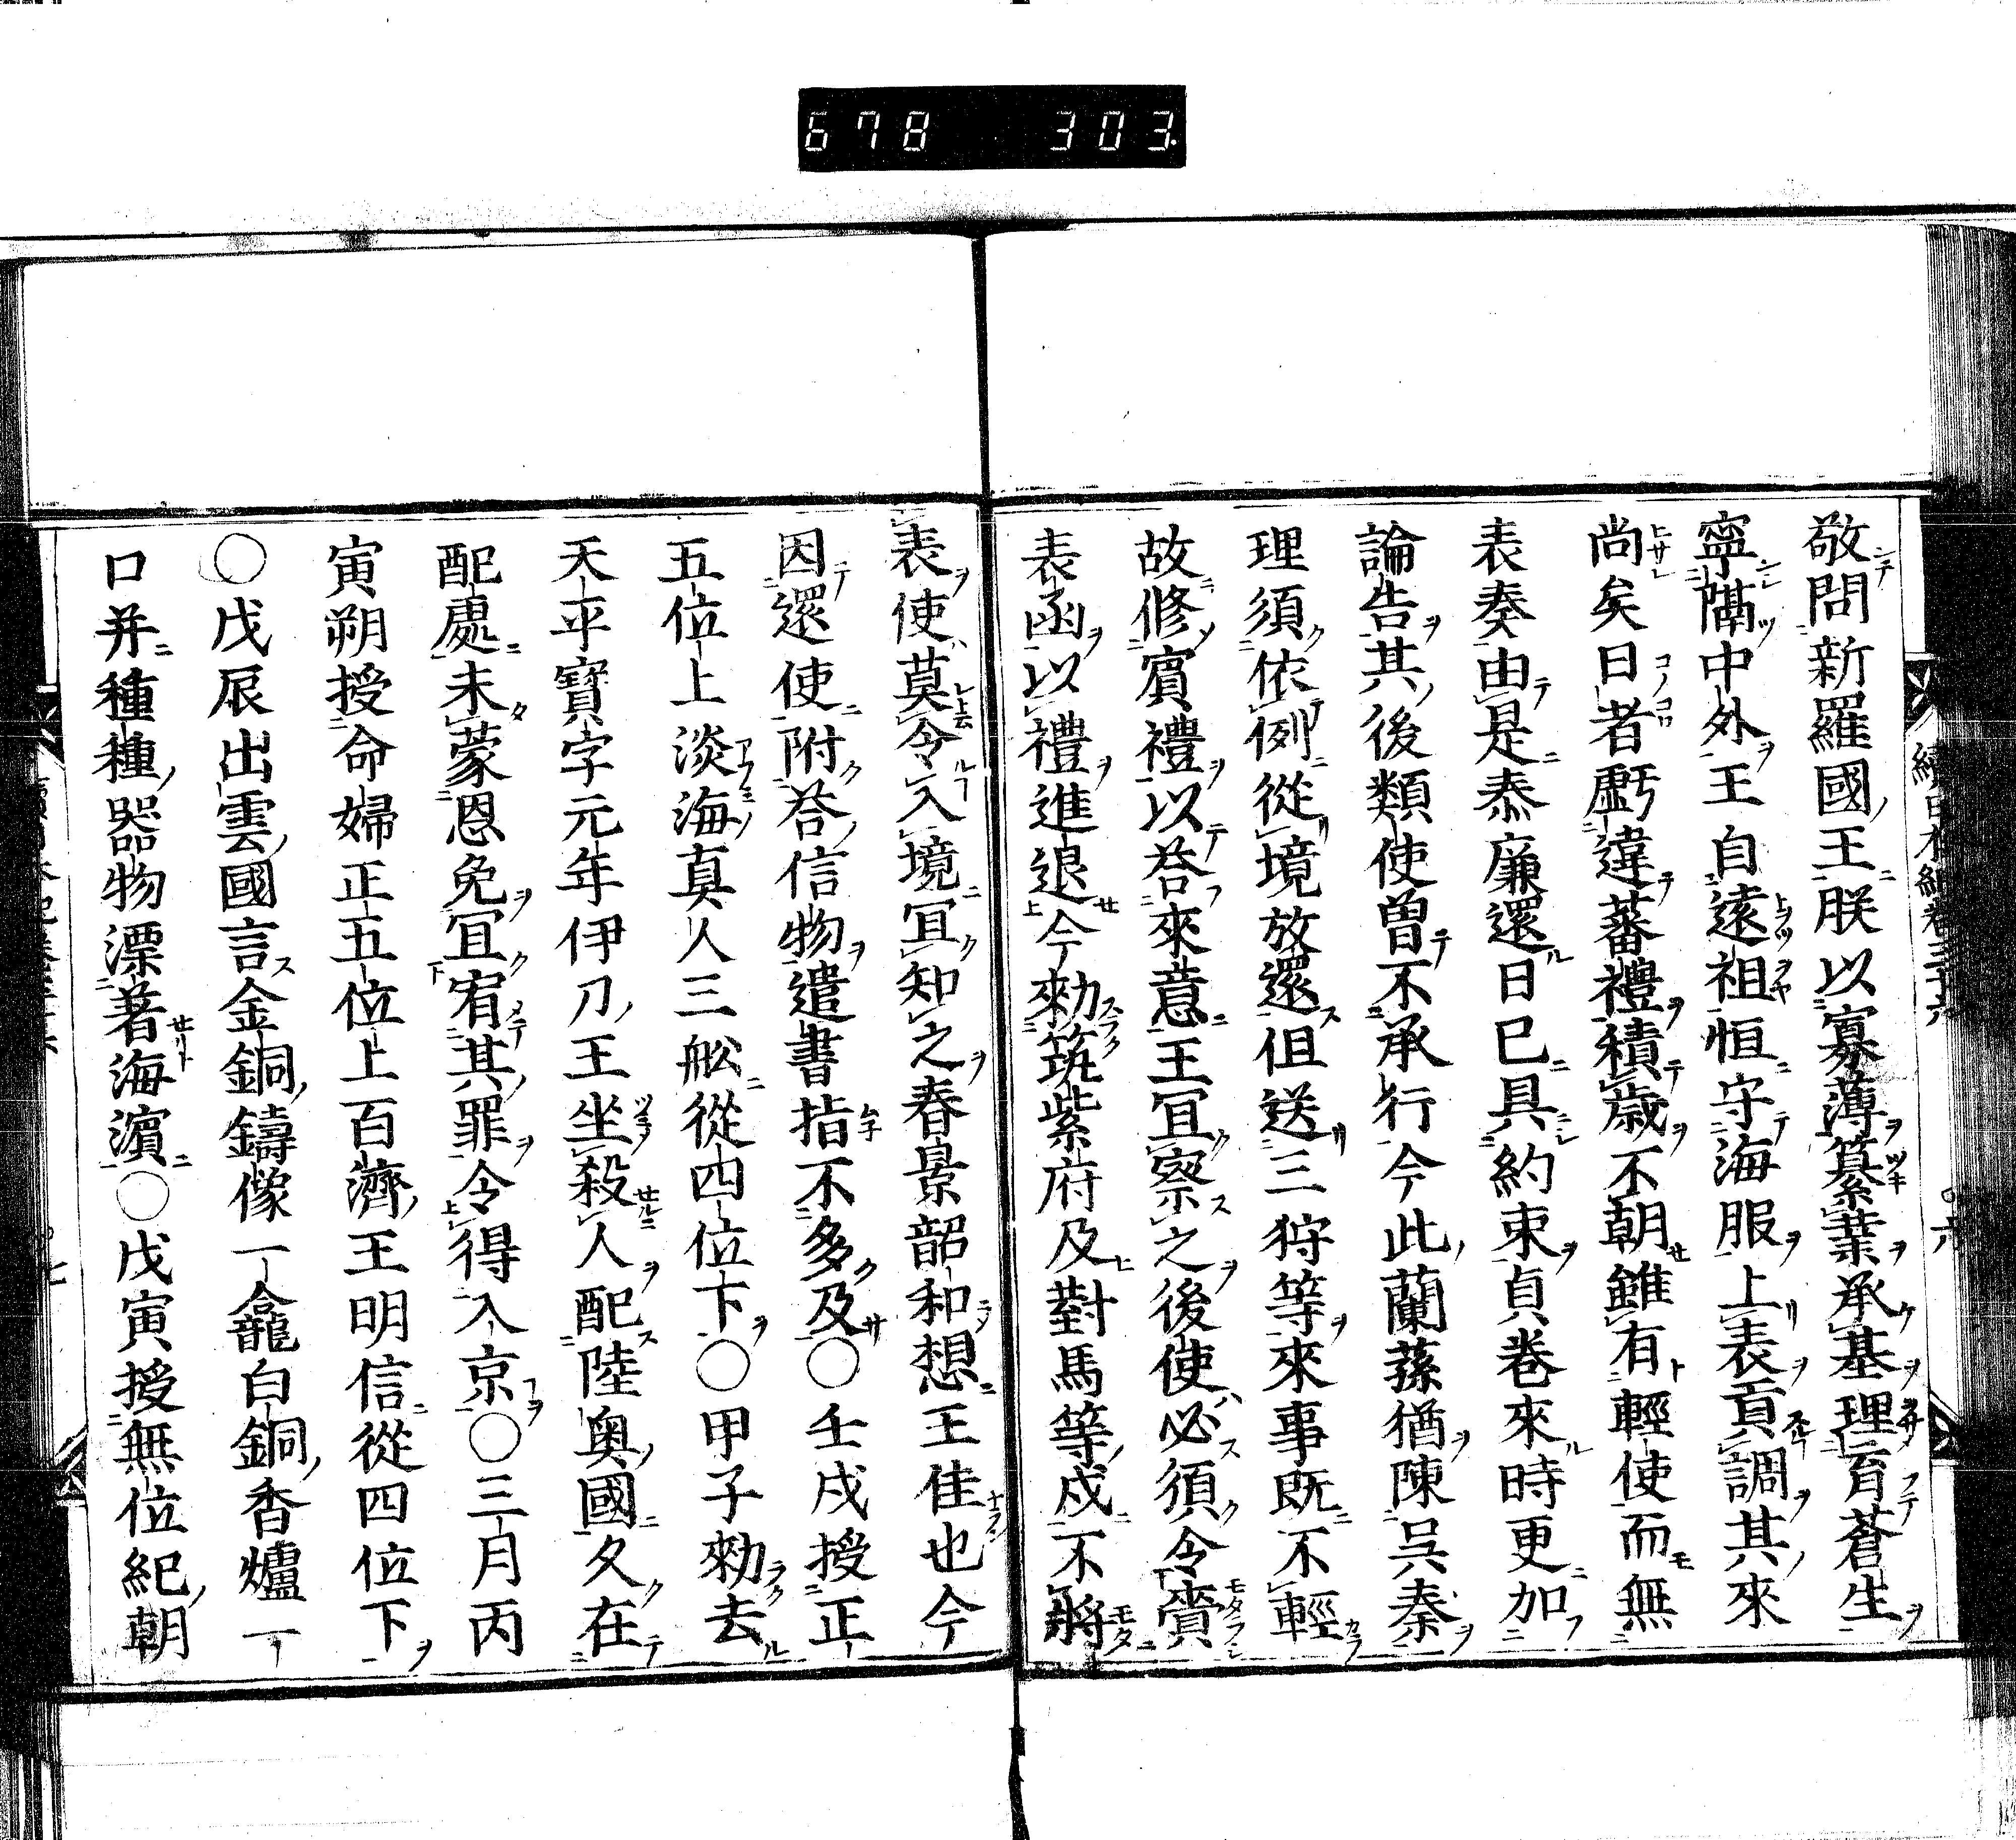 678 303
敬問新羅國王朕以寡薄纂業承基理育蒼生
寧隔中外王自遠祖恒守海服上表貢調其來
尚矣日者虧違蕃禮積歳不朝雖有輕使而無
表奏由是泰廉還日已具約束貞巻來時更加
論告其後類使曽不承行今此蘭蓀猶陳呉秦
理須依例從境放還但送三狩等來事既不輕
故修賓禮以荅來意王宜察之後使必須令賷
表函以禮進退今勑筑紫府及對馬等戍不將
表使莫令入境宜知之春景韶和想王佳也今
因還使附荅信物遣書指不多及○壬戌授正
五位上淡海真人三舩從四位下○甲子勑去
天平寳字元年伊刀王坐殺人配陸奥國久在
配處未蒙恩免宜宥其罪令得入京○三月丙
寅朔授命婦正五位上百濟王明信從四位下
○戊辰出雲國言金銅鑄像一龕白銅香爐一
口并種種器物漂著海濱○戊寅授無位紀朝